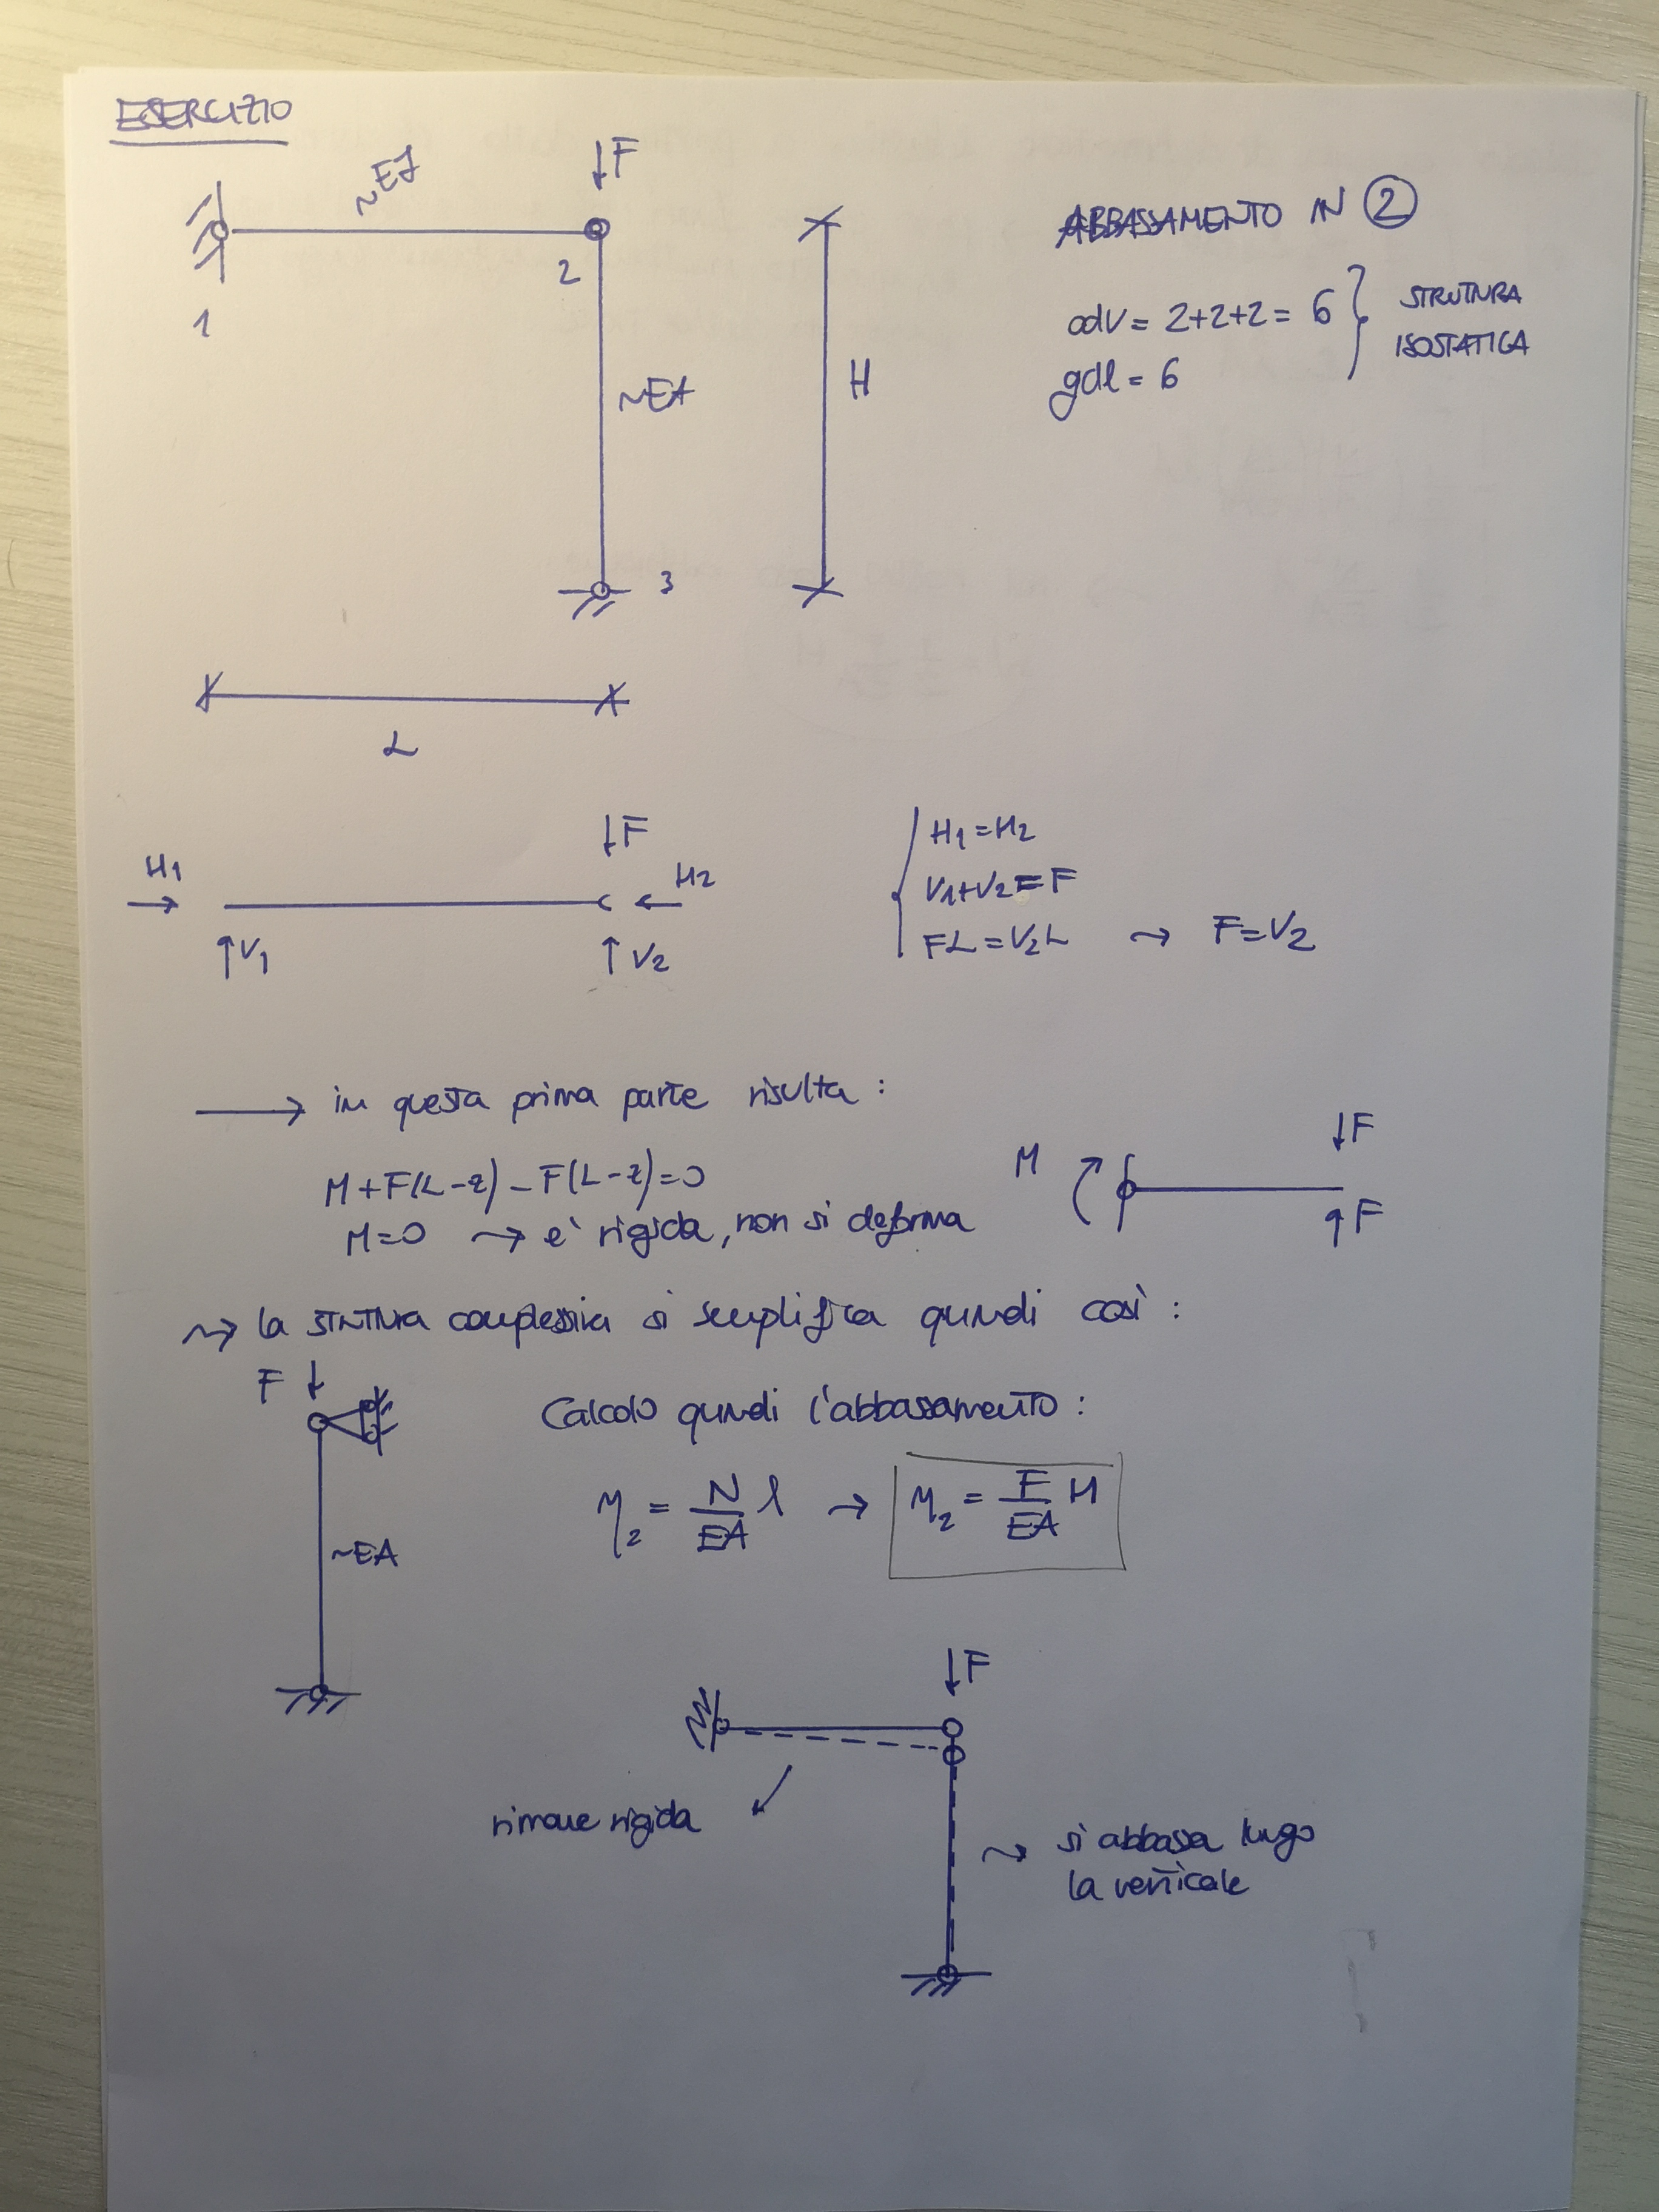 ESERCIZIO
~EJ
↓F
ABBASSAMENTO IN 2
1
2
odv = 2+2+2 = 6
gdl = 6
STRUTTURA
ISOSTATICA
~EA
H
3
L
↓F
H1
H2
V1
V2
H1 = H2
V1+V2 = F
FL = V2L → F = V2
→ in questa prima parte risulta :
M+F(L-z) - F(L-z) = 0
M=0 → e' rigida, non si deforma
M
↓F
↑F
~> la struttura complessiva si semplifica quindi così :
F ↓
Calcolo quindi l'abbassamento :
η2 = N/EA l → η2 = F/EA H
~EA
↓F
rimane rigida
~> si abbassa lungo
la verticale